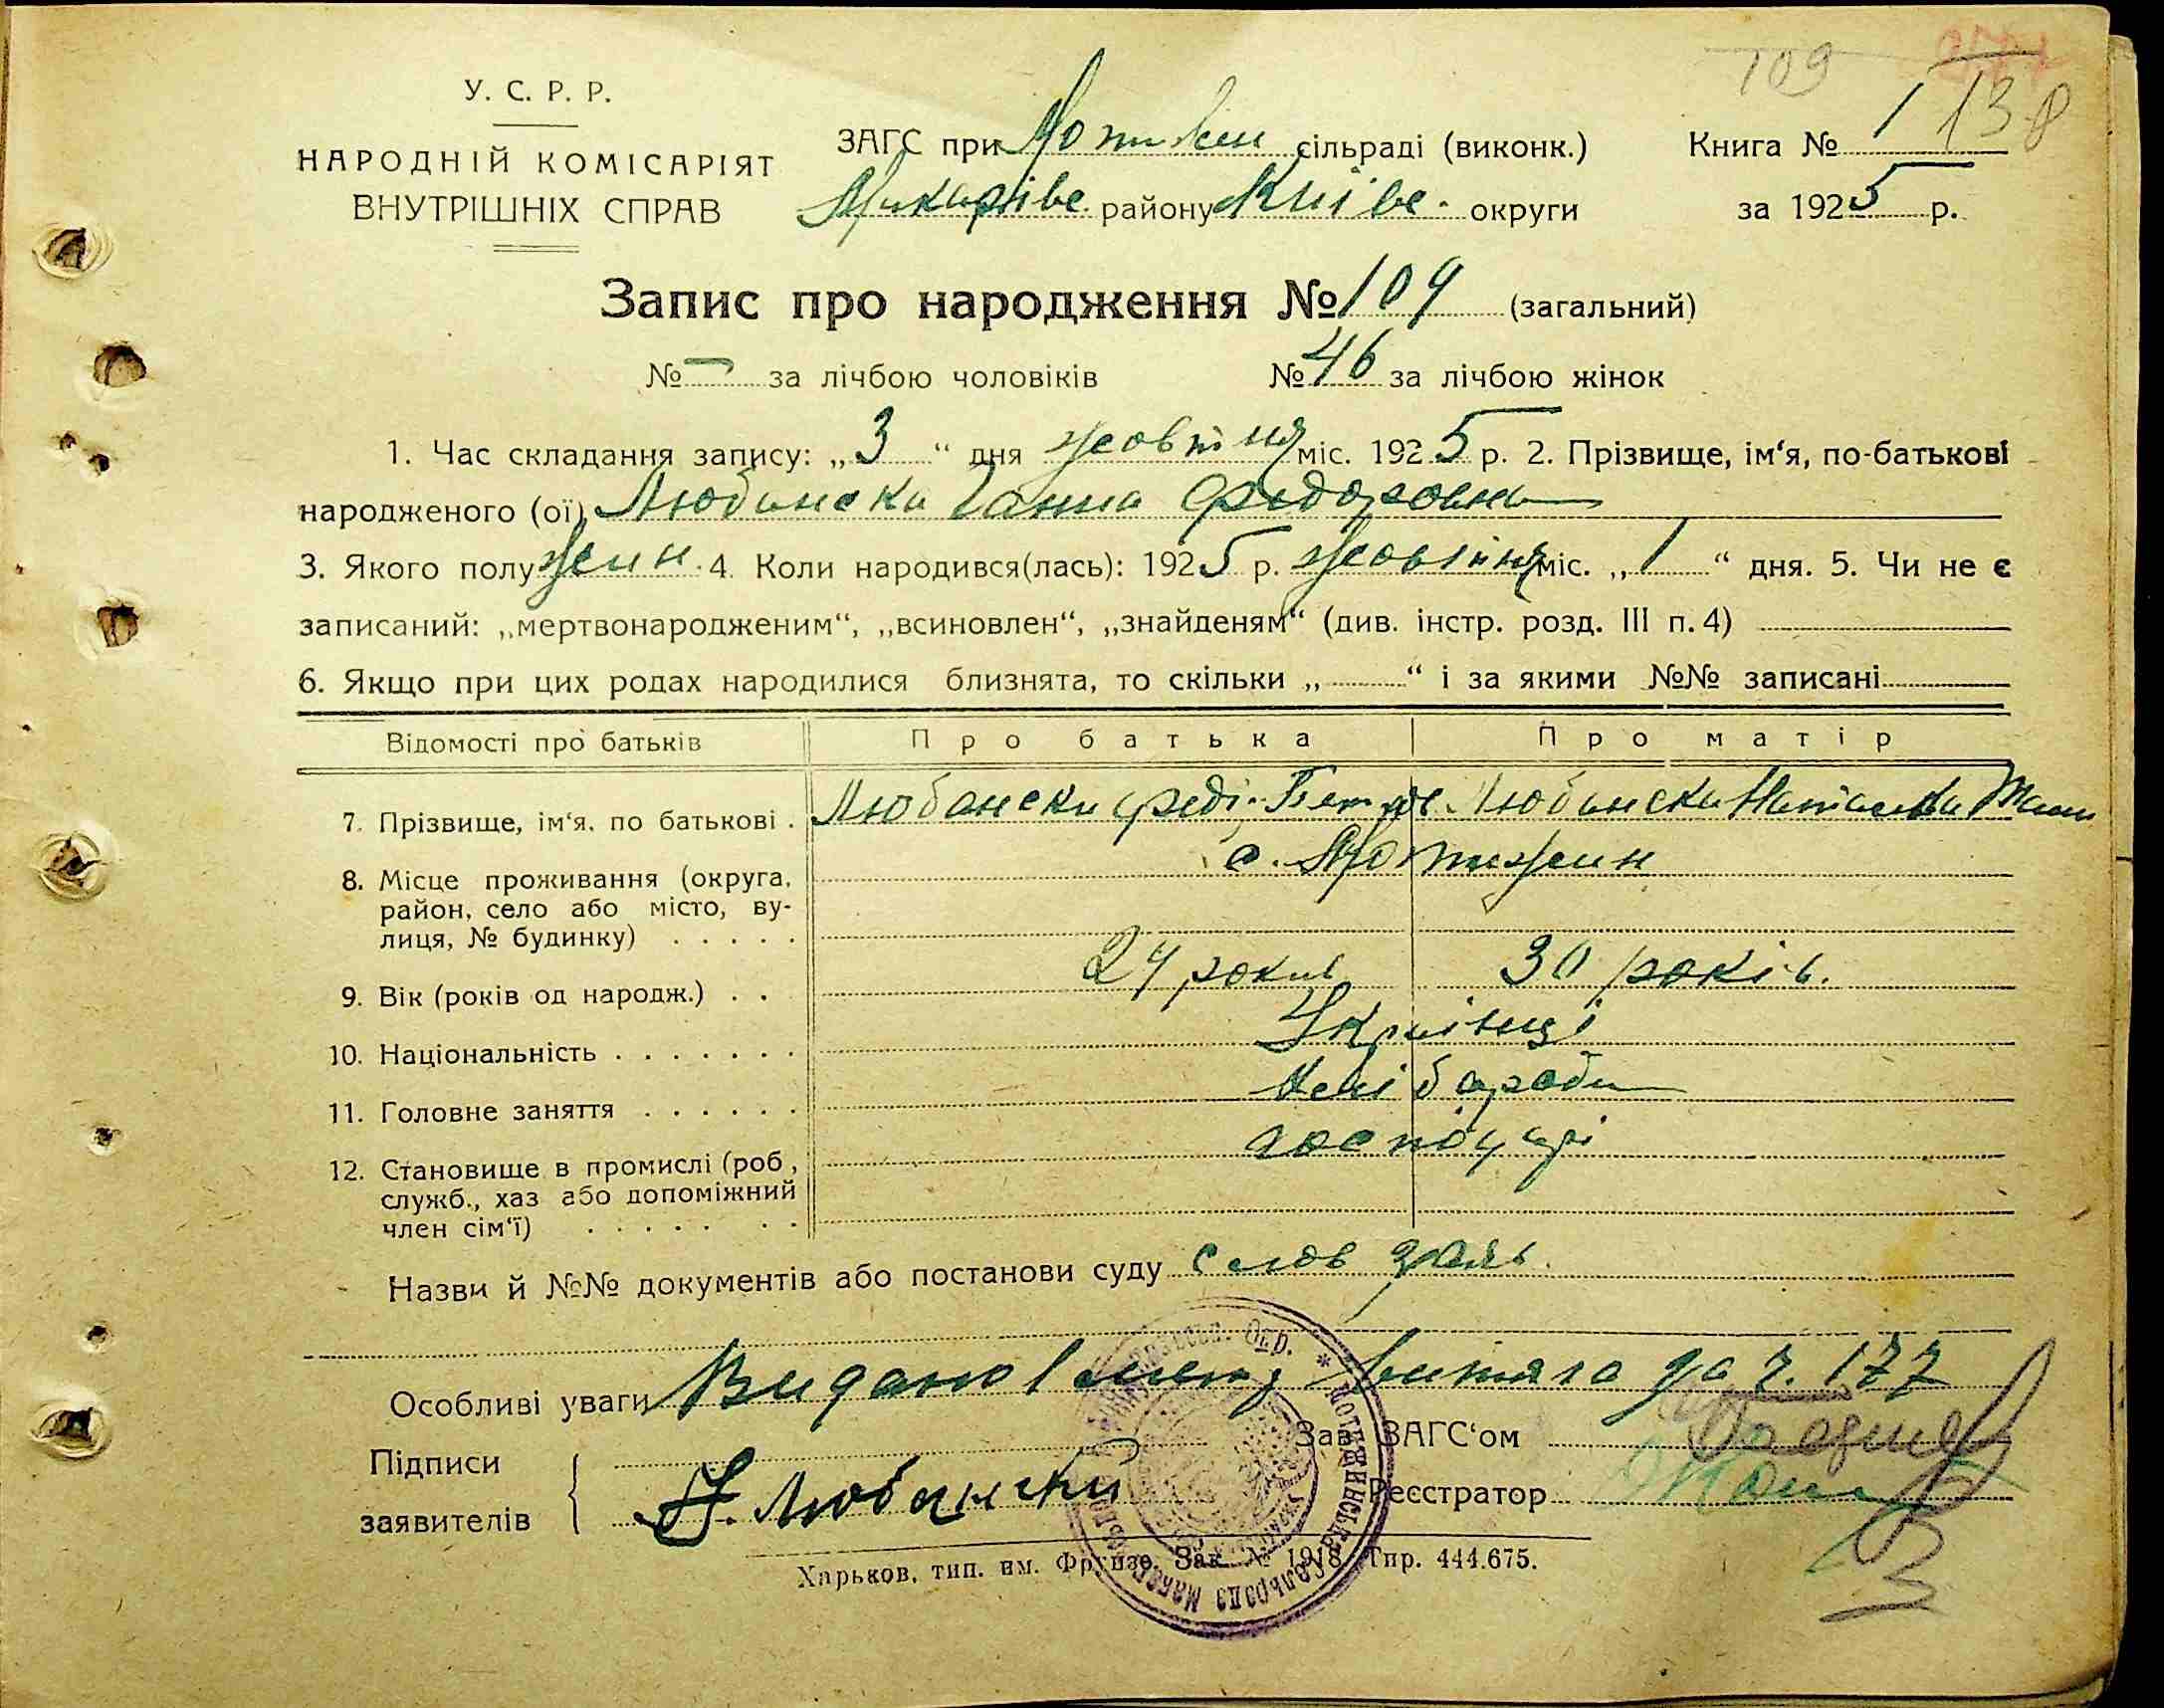 109
1 138
У. С. Р. Р.
НАРОДНІЙ КОМІСАРІЯТ
ВНУТРІШНІХ СПРАВ
ЗАГС при Мотижин сільраді (виконк.)
Макарівс. району Київс. округи
Книга № 1
за 1925 р.
Запис про народження № 109 (загальний)
№ — за лічбою чоловіків № 46 за лічбою жінок
1. Час складання запису: „3“ дня жовтня міс. 1925 р. 2. Прізвище, ім‘я, по-батькові
народженого (ої) Любанска Ганна Федоровна
3. Якого полу жин. 4. Коли народився(лась): 1925 р. жовтня міс. „1“ дня. 5. Чи не є
записаний: „мертвонародженим“, „всиновлен“, „знайденям“ (див. інстр. розд. III п. 4)
6. Якщо при цих родах народилися близнята, то скільки „ “ і за якими №№ записані
Відомості про батьків Про батька Про матір
7. Прізвище, ім‘я, по батькові . Любански Феді. Петров Любанска Наталка
8. Місце проживання (округа, с. Мотижин
район, село або місто, ву-
лиця, № будинку) . . . . .
9. Вік (років од народж.) . . 24 років 30 років.
10. Національність . . . . . . . Українці
11. Головне заняття . . . . . . Хлібороби
12. Становище в промислі (роб, господарі
служб., хаз або допоміжний
член сім‘ї) . . . . . . .
Назви й №№ документів або постанови суду слов заяв.
Особливі уваги Видано витяга за ч. 177
Підписи
заявителів
Любански
Зав. ЗАГС‘ом
Реєстратор
Харьков, тип. им. Фрунзе. Зак. № 1918. Тир. 444.675.